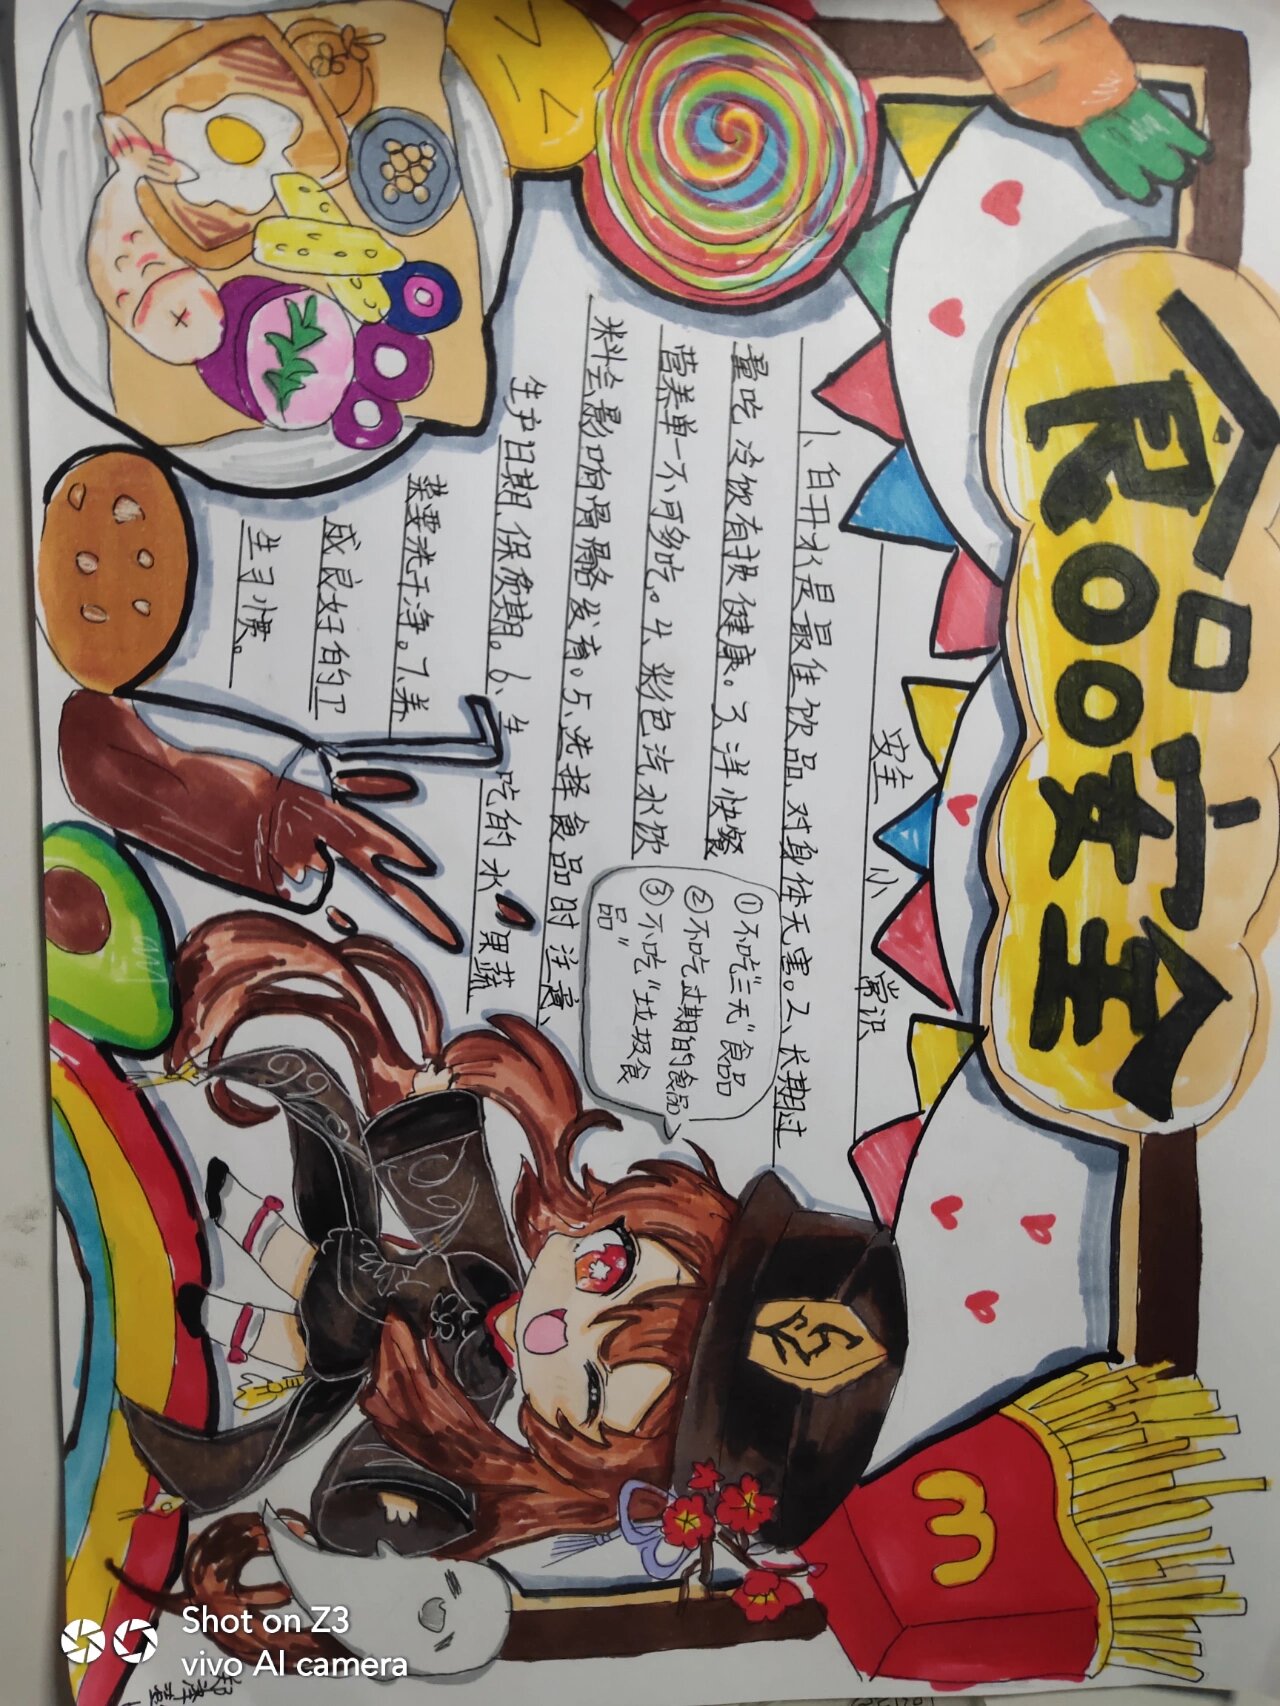 食品安全
安全小常识
1、白开水是最佳饮品,对身体无害。2、长期过
量吃冷饮有损健康。3、洋快餐
营养单一不可多吃。4、彩色汽水饮
料会影响骨骼发育。5、选择食品时注意
生产日期,保质期。6、生吃的水果蔬
菜要洗干净。7、养
成良好的卫
生习惯。
①不吃“三无”食品
②不吃过期的食品
③不吃“垃圾食
品”
m
Shot on Z3
vivo AI camera